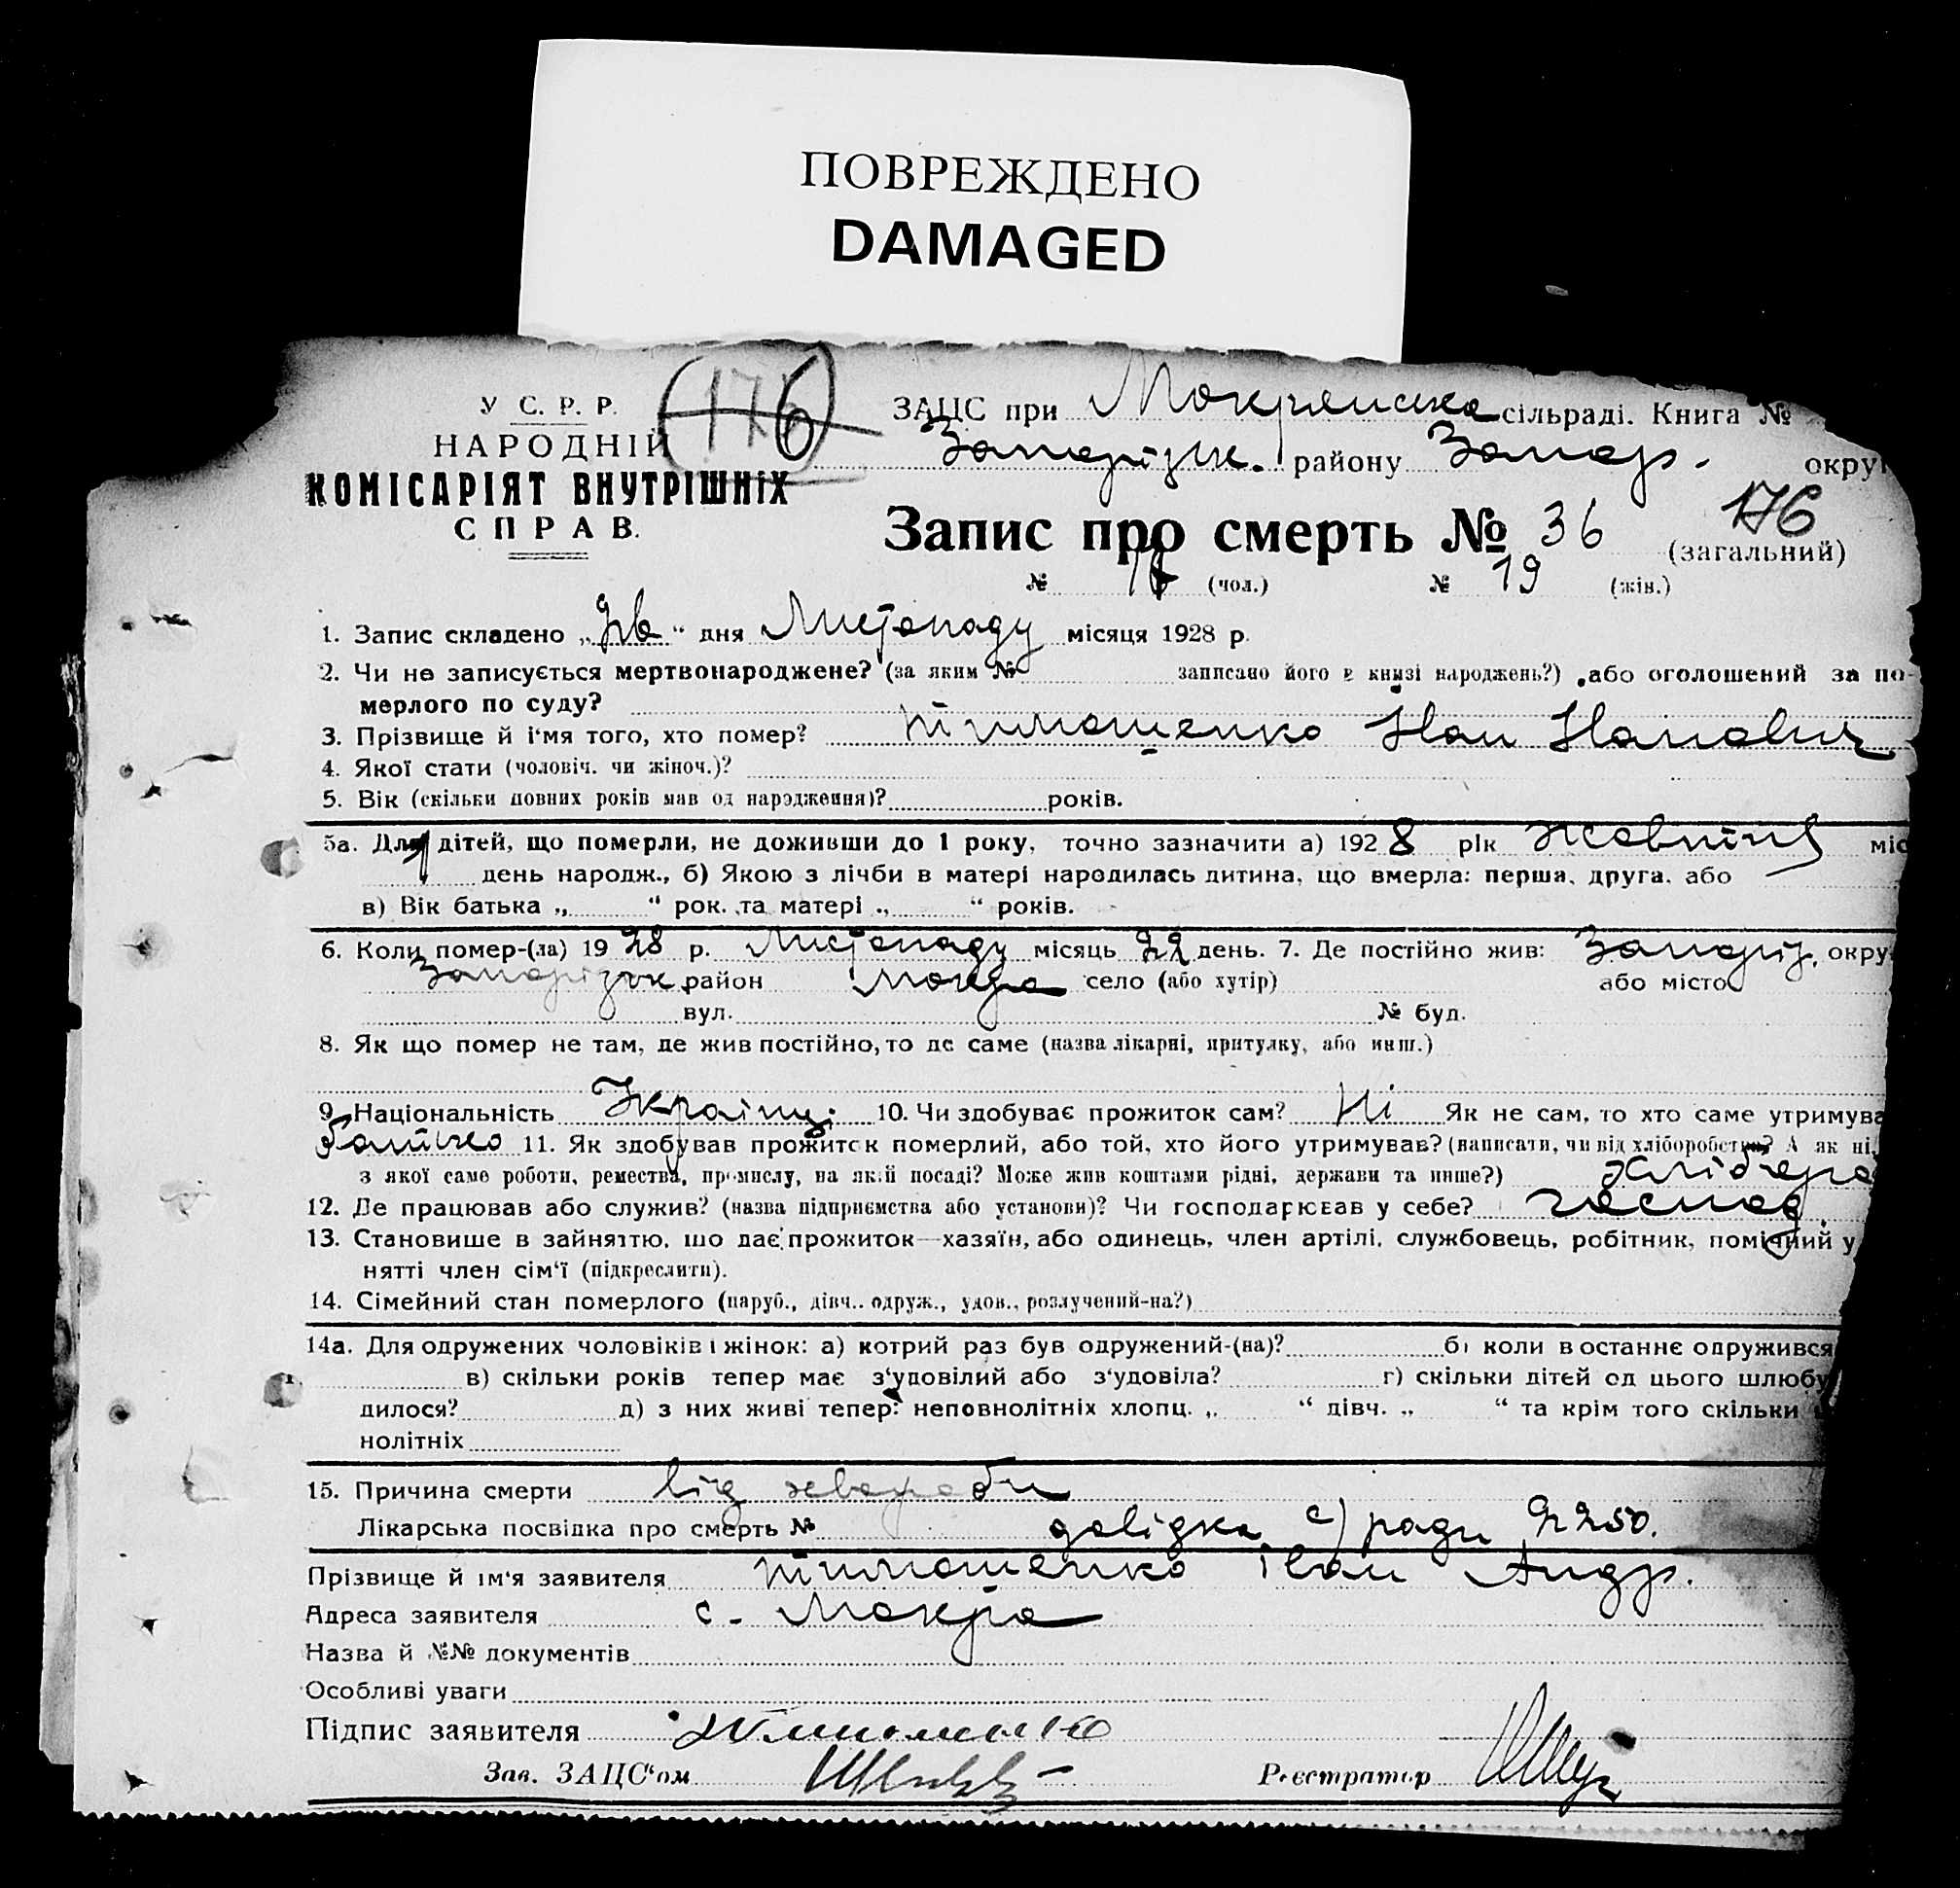 ПОВРЕЖДЕНО
DAMAGED
У С. Р. Р.
НАРОДНІЙ
КОМІСАРІЯТ ВНУТРІШНІХ
СПРАВ.
(176)
ЗАЦС при Мокрянська сільраді. Книга №
Запорізьк. району Запор. окру
Запис про смерть № 36 176 (загальний)
№ (чол.) № 19 (жін.)
1. Запис складено „ “ дня Листопаду місяця 1928 р.
2. Чи не записується мертвонароджене? (за яким № записано його в книзі народжень?) або оголошений за по-
мерлого по суду?
3. Прізвище й і'мя того, хто помер? Тимошенко Іван Іванович
4. Якої стати (чоловіч. чи жіноч.)?
5. Вік (скільки повних років мав од народження)? років.
5а. Для дітей, що померли, не доживши до 1 року, точно зазначити а) 1928 рік Жовтня міс
день народж., б) Якою з лічби в матері народилась дитина, що вмерла: перша, друга, або
в) Вік батька „ “ рок. та матері „ “ років.
6. Коли помер-(ла) 1928 р. Листопаду місяць 22 день. 7. Де постійно жив: Запоріз. окру
Запорізьк район Мокра село (або хутір) або місто
вул. № буд.
8. Як що помер не там, де жив постійно, то де саме (назва лікарні, притулку, або инш.)
9. Національність Україиц. 10. Чи здобуває прожиток сам? Ні Як не сам, то хто саме утримува
батько 11. Як здобував прожиток померлий, або той, хто його утримував? (написати, чи від хліборобства? А як ні,
з якої саме роботи, ремества, промислу, на якій посаді? Може жив коштами рідні, держави та инше?) хлібороб
12. Де працював або служив? (назва підприємства або установи)? Чи господарював у себе? господ.
13. Становище в зайняттю, що дає прожиток—хазяїн, або одинець, член артілі, службовець, робітник, помічний у
нятті член сім'ї (підкреслити).
14. Сімейний стан померлого (паруб., дівч.. одруж., удов., розлучений-на?)
14а. Для одружених чоловіків і жінок: а) котрий раз був одружений-(на)? б) коли востаннє одружився
в) скільки років тепер має з'удовілий або з'удовіла? г) скільки дітей од цього шлюбу
дилося? д) з них живі тепер: неповнолітніх хлопц. „ “ дівч. „ “ та крім того скільки
нолітніх
15. Причина смерти від хвороби
Лікарська посвідка про смерть № довідка с/ради 2250.
Прізвище й ім'я заявителя Тимошенко Іван Андр.
Адреса заявителя с. Мокра
Назва й №№ документів
Особливі уваги
Підпис заявителя
Зав. ЗАЦС'ом Реєстратор